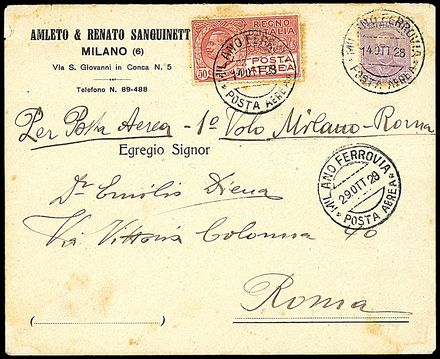 AMLETO & RENATO SANGUINETT
MILANO (6)
Via S. Giovanni in Conca N. 5
Telefono N. 89-488
REGNO
D'ITALIA
POSTA
AEREA
MILANO FERROVIA
14 OTT 28
POSTA AEREA
MILANO FERROVIA
14 OTT 28
POSTA AEREA
Per Posta Aerea - 1º Volo Milano-Roma
Egregio Signor
Dr Emilio Diena
Via Vittoria Colonna 40
Roma
MILANO FERROVIA
29 OTT 28
POSTA AEREA